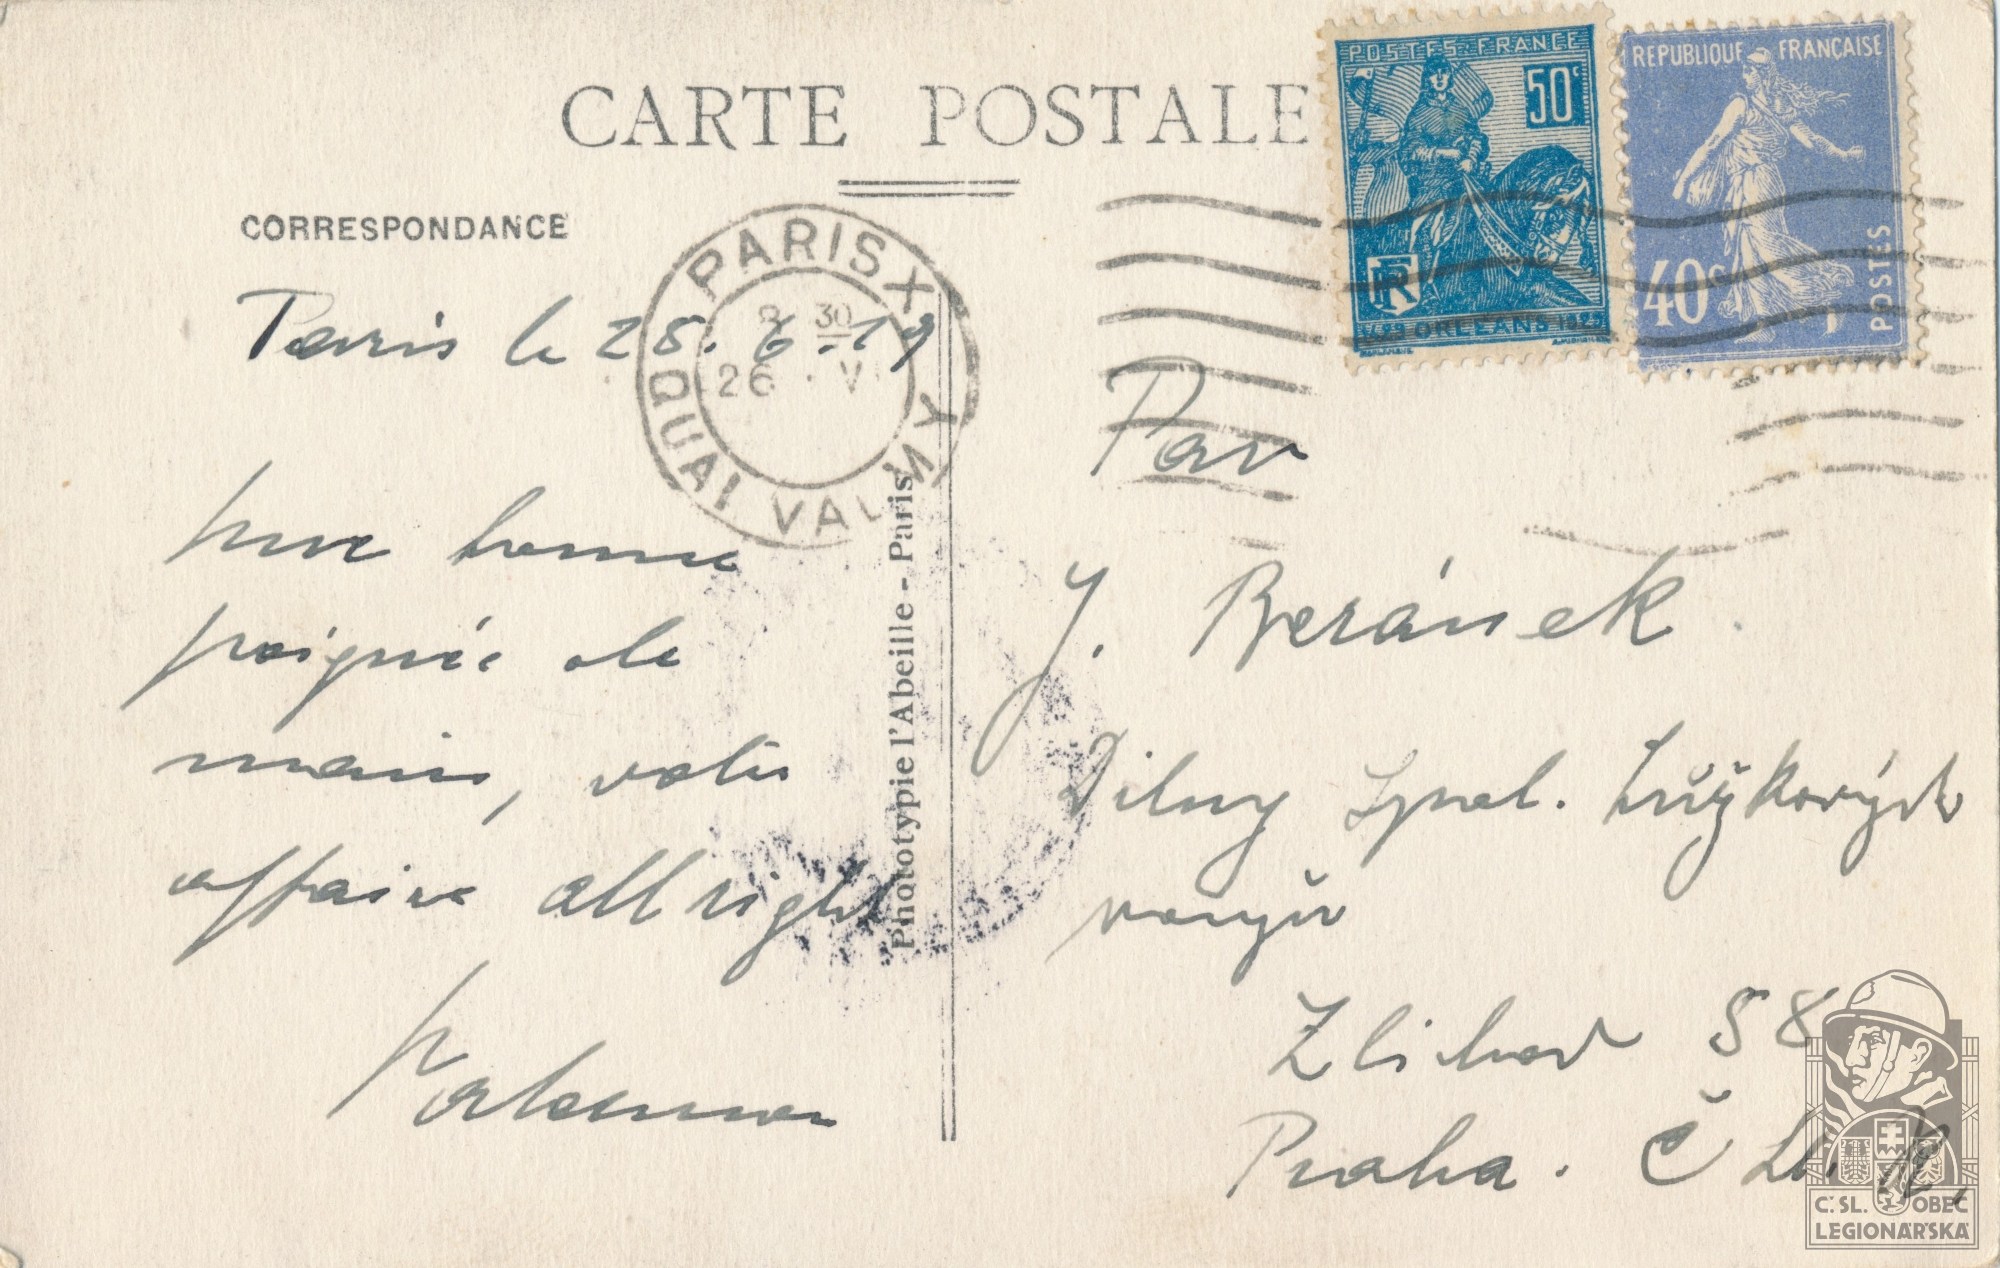 CARTE POSTALE
CORRESPONDANCE
POSTES FRANCE
50c
RF
1429 ORLEANS 1929
REPUBLIQUE FRANÇAISE
40c
POSTES
PARIS X
8 30
26 V
QUAI VALMY
Paris le 25.6.29
une bonne
poignée de
main, votre
affaire all right
Phototypie l'Abeille - Paris
Pan
J. Beránek
Dílny Spol. Lůžkových
vozů
Zlichov 58
Praha. Č
C.SL. OBEC
LEGIONÁŘSKÁ